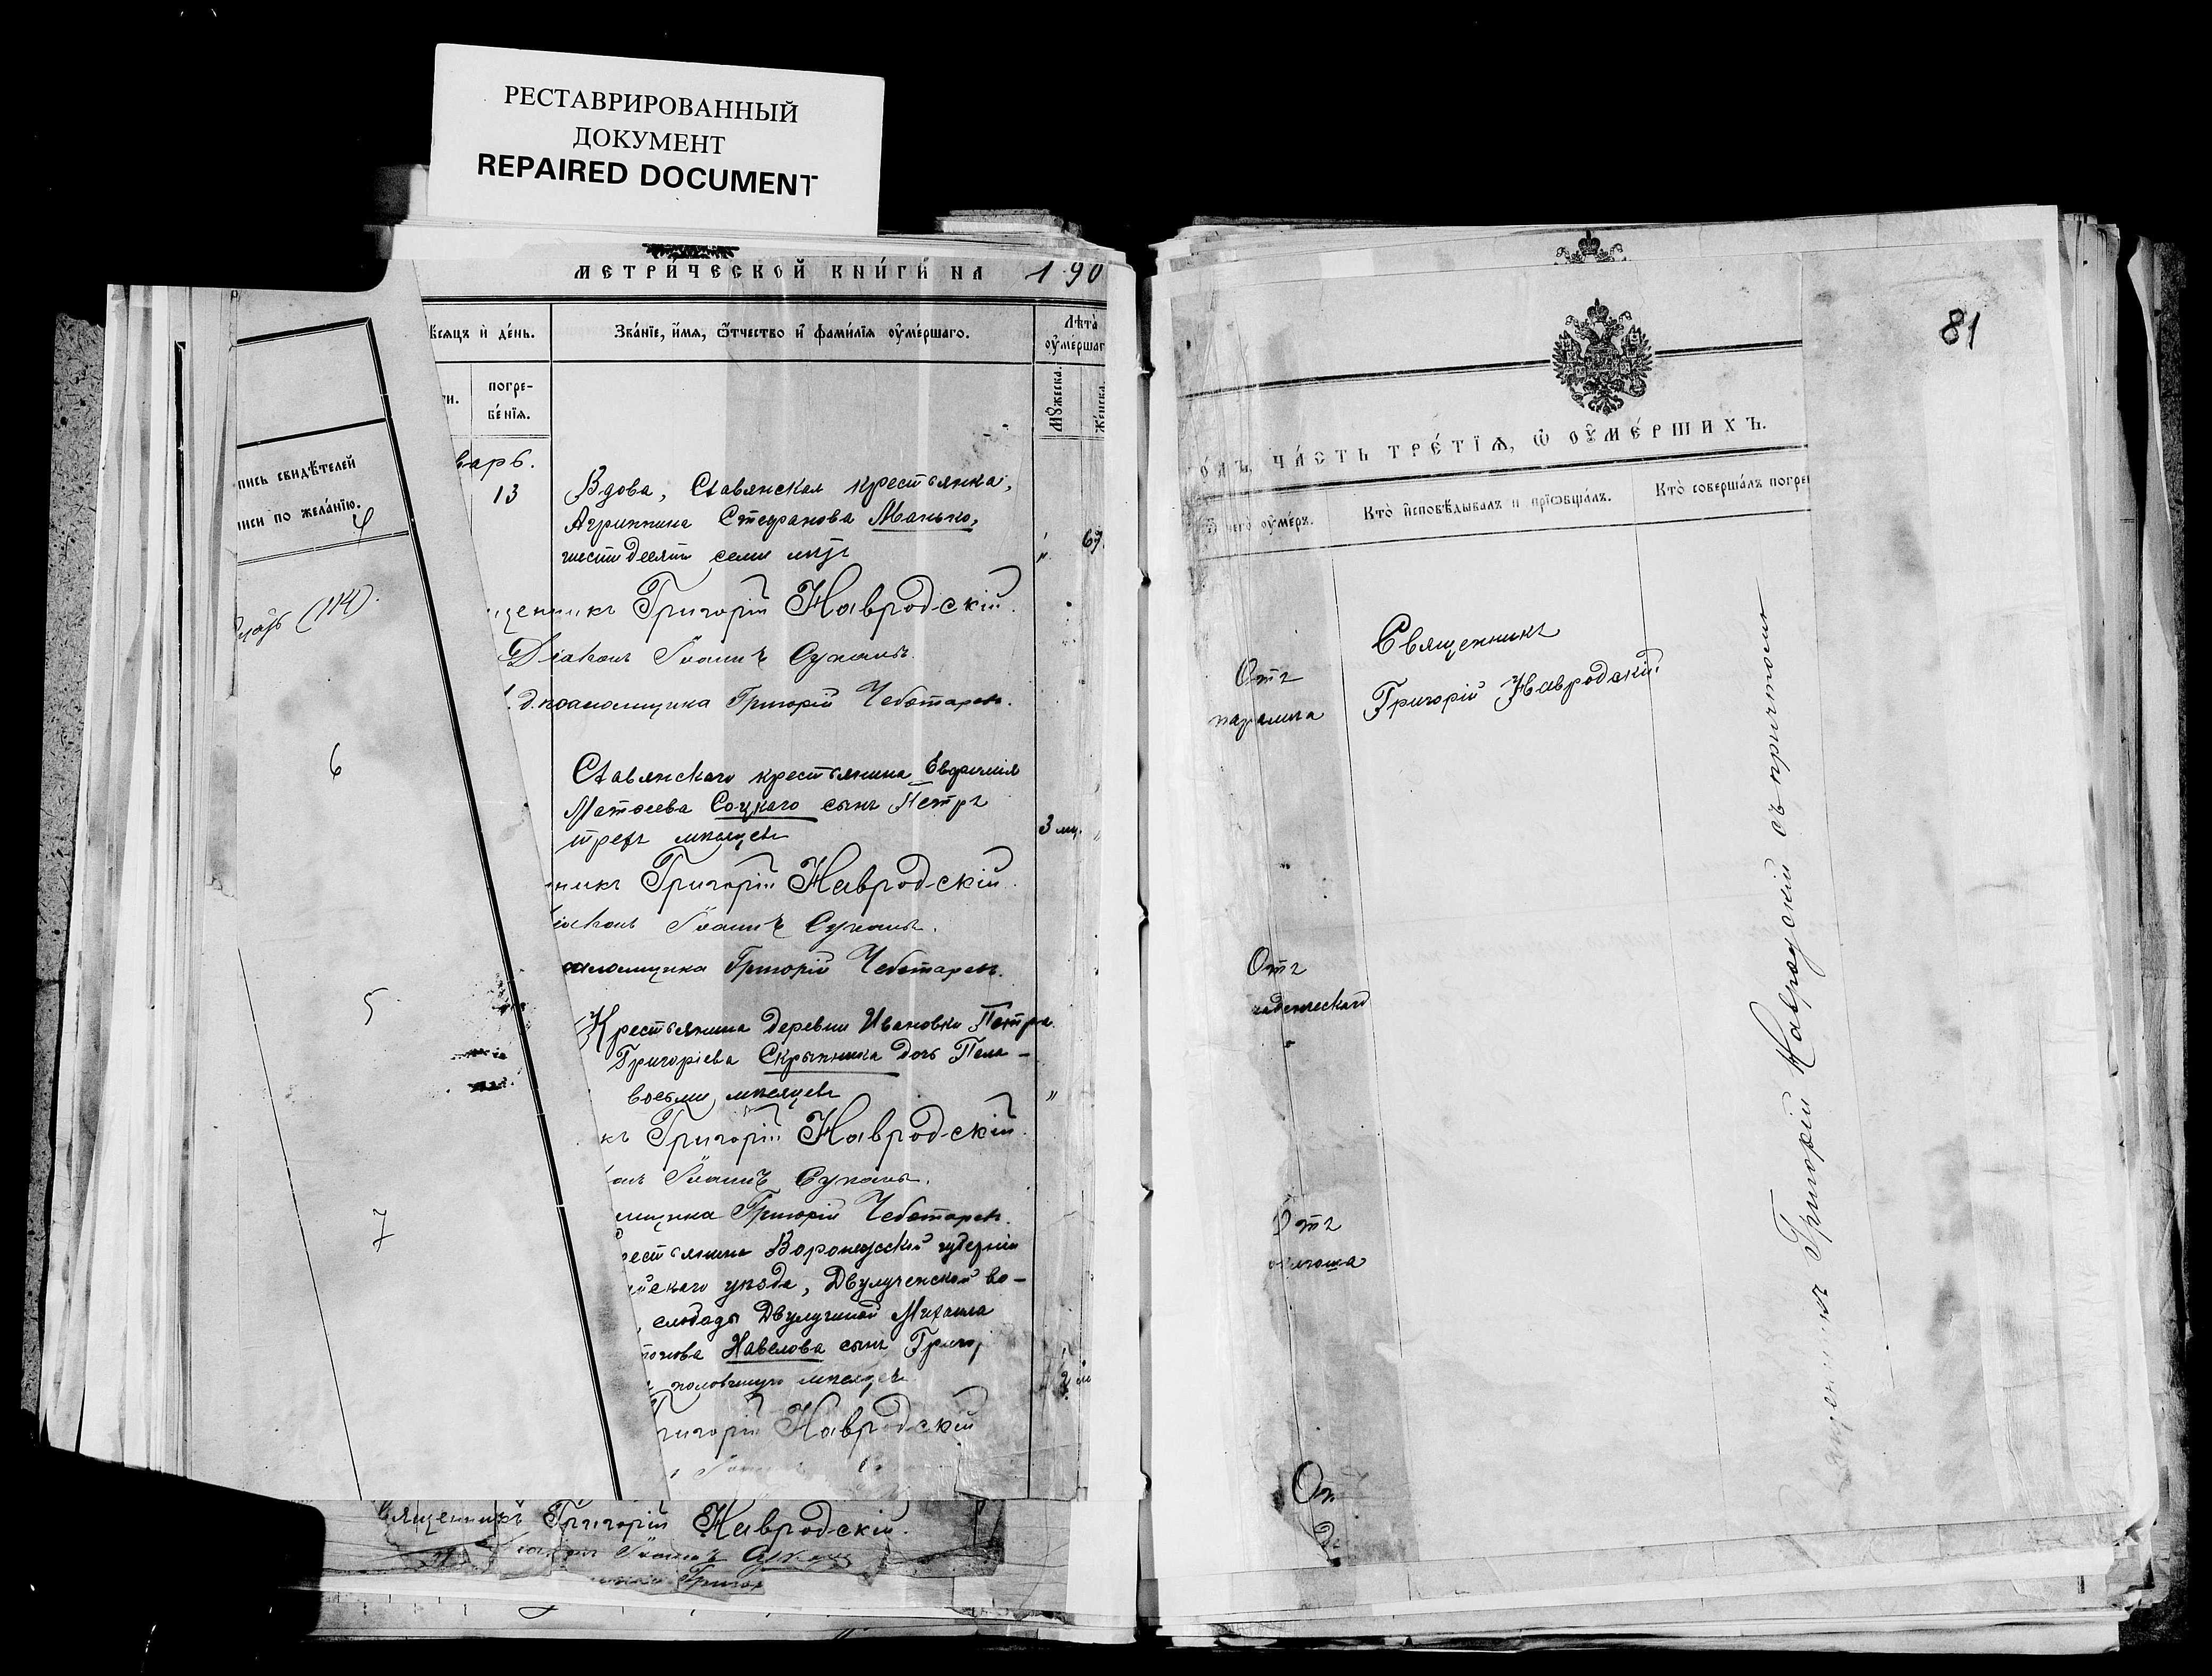 РЕСТАВРИРОВАННЫЙ
ДОКУМЕНТ
REPAIRED DOCUMENT
МЕТРИ́ЧЕСКОЙ КНИ́ГИ НА 190
пись свидѣтелей
писи по желанію.
6
5
7
(114).
ѣсяцъ и де́нь.
погре-
бе́нїя.
Зва́нїе, и́мя, ѿтчество и фами́лїя оуме́ршаго.
Лѣта̀
оуме́ршаг
Мꙋжеска.
Же́нска.
варь.
13
Вдова, Славянская крестьянка,
Агриппина Стефанова Манько,
шестидесяти семи лѣтъ
67
щенникъ Григорій Навродскій.
Діаконъ Іоаннъ
д. псаломщика Григорій Чеботарев.
Славянскаго крестьянина Евфимія
Матѳеева Соцкаго сынъ Петръ
трехъ мѣсяцевъ
3 мц.
никъ Григорій Навродскій.
іаконъ Іоаннъ
аломщика Григорій Чеботарев.
Крестьянина деревни Ивановки Петра
Григоріева Скрыпника дочь Пела-
восьми мѣсяцевъ
къ Григорій Навродскій.
онъ Іоаннъ
омщика Григорій Чеботарев.
рестьянина Воронежской губерніи
йскаго уѣзда, Двулученской во-
слободы Двулучной Михаила
Павелова сынъ Григор
половиною мѣсяцевъ
Григорій Навродскій
Священникъ Григорій Навродскій.
Григор
81
о́дъ, ЧА́СТЬ ТРЕ́ТЇѦ, Ѡ ОУМЕ́РШИХЪ.
Ѿ чего̀ оу́меръ.
Кто̀ исповѣ́дывалъ и прїѡбща́лъ.
Кто̀ соверша́лъ погре
Отъ
паралича
Священникъ
Григорій Навродскій
Отъ
аденческаго
Отъ
Священникъ Григорій Навродскій съ причтомъ
От